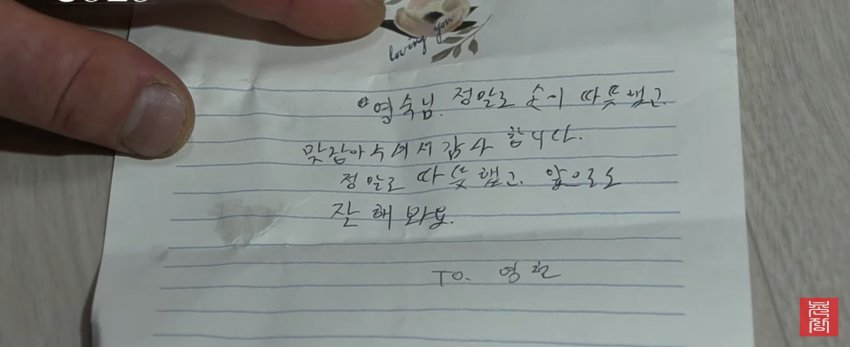 loving you
영숙님. 정말로 손이 따뜻했고
맞잡아주셔서 감사 합니다.
정말로 따뜻했고. 앞으로도
잘 해 봐요.
TO. 영철
촌장